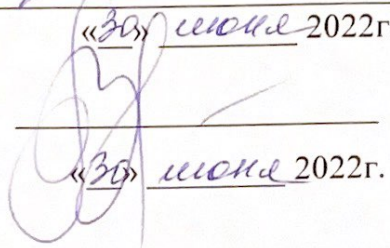 «30» июня 2022г
«30» июня 2022г.